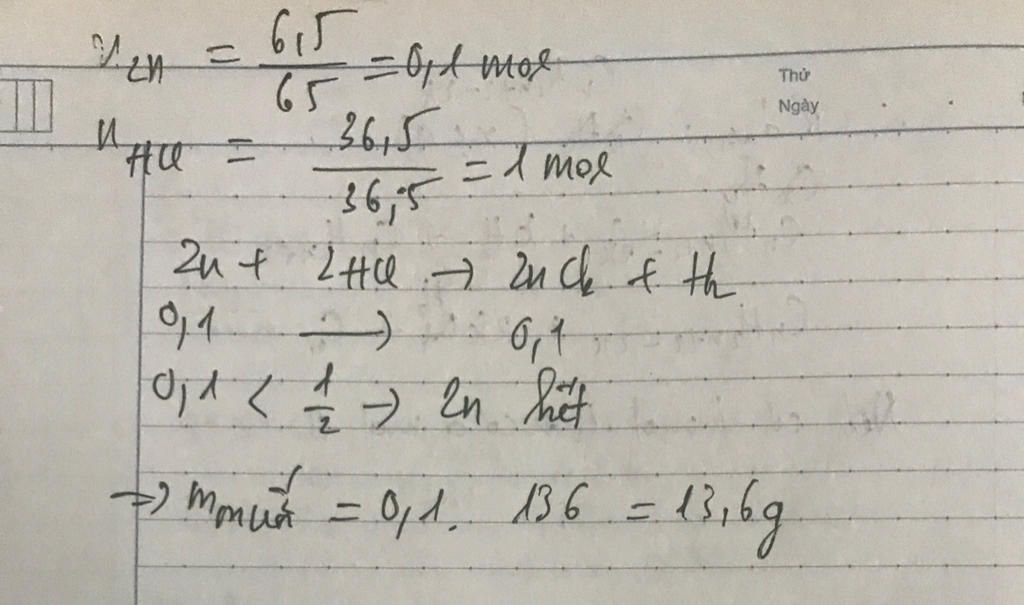 n Zn = 6,5 / 65 = 0,1 mol
Thứ
Ngày
n HCl = 36,5 / 36,5 = 1 mol
Zn + 2HCl → ZnCl₂ + H₂
0,1 → 0,1
0,1 < 1/2 → Zn hết
⇒ m muối = 0,1. 136 = 13,6g